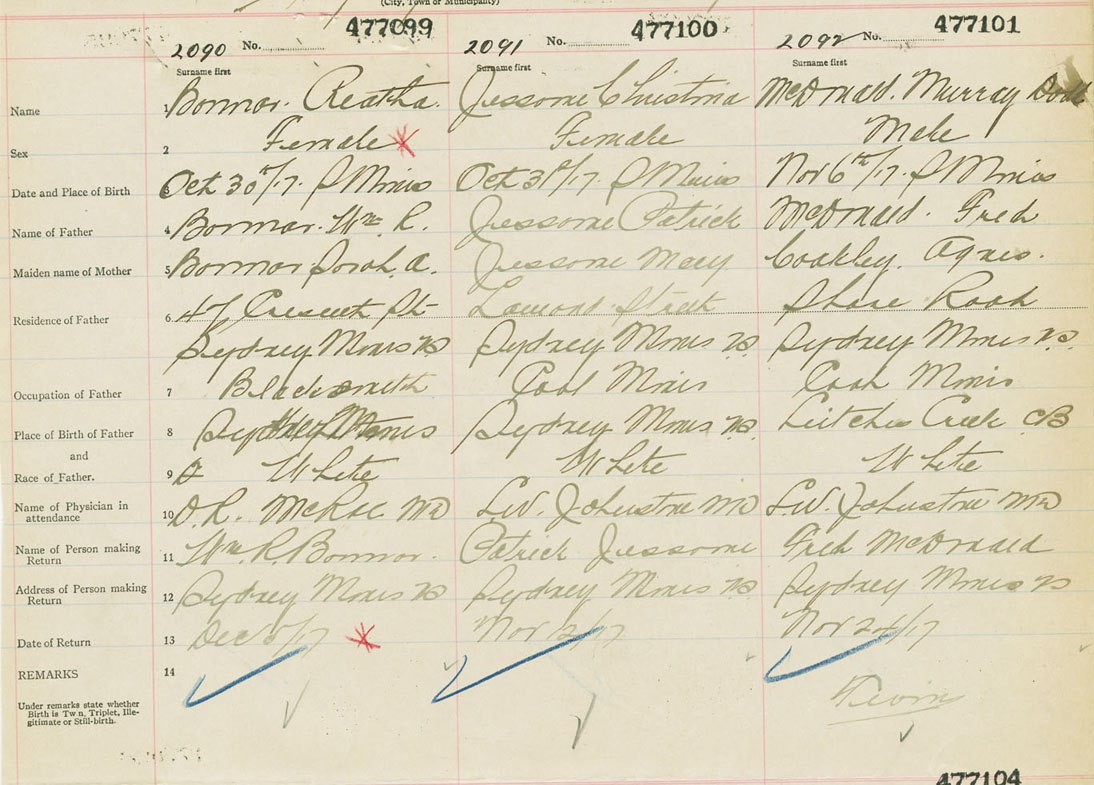 (City, Town or Municipality)
477099 477100 477101
2090 No. 2091 No. 2092 No.
Surname first Surname first Surname first
Name 1 Bonnar. Reatha. Jessome Christina McDonald. Murray
Sex 2 Female Female Male
Date and Place of Birth 3 Oct 30th/17. S Mines Oct 31st/17 S Mines Nov 6th/17. S Mines
Name of Father 4 Bonnar. Wm R. Jessome Patrick McDonald. Fred
Maiden name of Mother 5 Bonnar Sarah. A. Jessome Mary Coakley. Agnes.
Residence of Father 6 47 Crescent St Lamond Street Shore Road
Sydney Mines NS Sydney Mines NS. Sydney Mines N.S.
Occupation of Father 7 Blacksmith Coal Miner Coal Miner
Place of Birth of Father 8 Sydney Mines Sydney Mines NS. Leitches Creek CB
and
Race of Father. 9 White White White
Name of Physician in 10 D.R. McRae MD L.W. Johnstone MD L.W. Johnstone MD
attendance
Name of Person making 11 Wm. R. Bonnar. Patrick Jessome Fred McDonald
Return
Address of Person making 12 Sydney Mines NS Sydney Mines NS Sydney Mines NS
Return
Date of Return 13 Dec 5/17 Nov 2/17 Nov 24/17
REMARKS 14
Under remarks state whether
Birth is Twin, Triplet, Ille-
gitimate or Still-birth.
477104